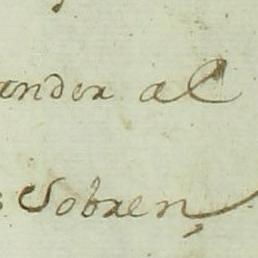 ander al
s Sobren